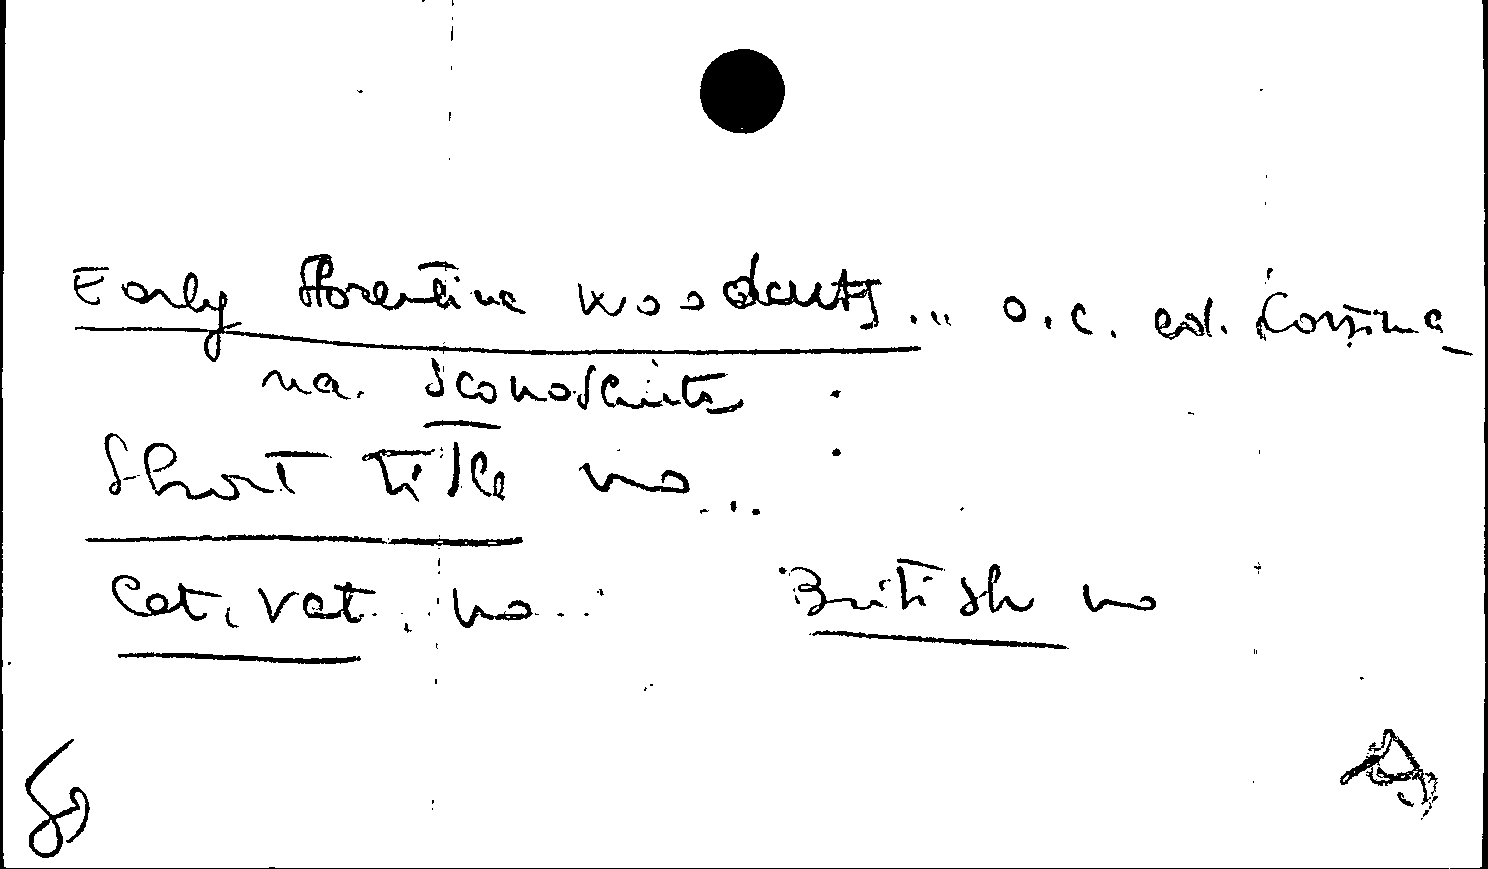 Early florentine woodcuts... o.c. ed. Corsinia
na. sconosciuta
Short title no...
Cat. Vat. no... British no